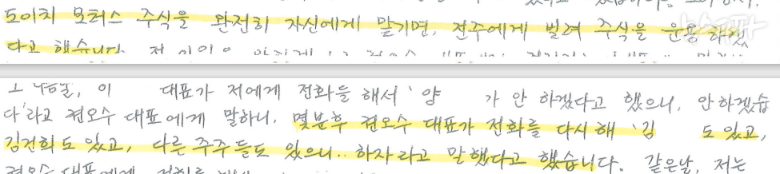 도이치 모터스 주식을 완전히 자신에게 맡기면, 전주에게 빌려 주식을 운용하겠
다고 했습니다. 저
뉴스타파
이 대표가 저에게 전화를 해서 '양 가 안 하겠다고 했으니, 안하겠습
다'라고 권오수 대표에게 말하니, 몇분후 권오수 대표가 전화를 다시 해 '김 도 있고,
김건희도 있고, 다른 주주들도 있으니.. 하자라고 말했다고 했습니다. 같은날, 저는
권오수 대표에게 전화를